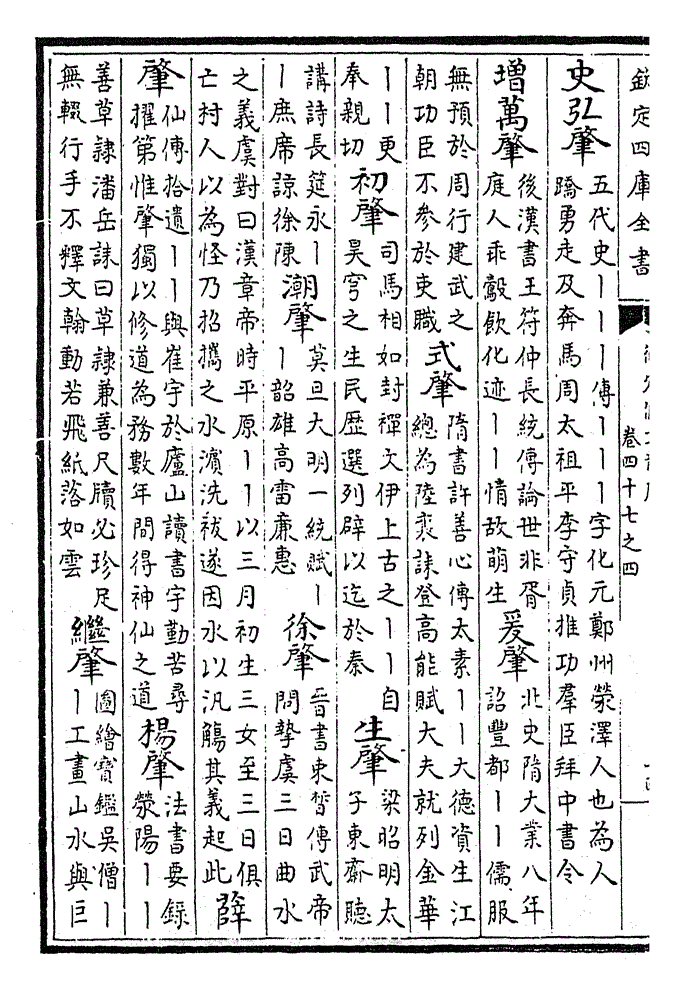 欽定四庫全書
卷四十七之四
史弘肇 五代史丨丨丨傳丨丨丨字化元鄭州滎澤人也為人蹻勇走及奔馬周太祖平李守貞推功羣臣拜中書令
增萬肇 後漢書王符仲長統傳論世非胥庭人乖鷇飲化迹丨丨情故萌生 爰肇 北史隋大業八年詔豐都丨丨儒服
無預於周行建武之朝功臣不參於吏職 式肇 隋書許善心傳太素丨丨大德資生江總為陸袞誄登高能賦大夫就列金華
丨丨更奉親切 初肇 司馬相如封禪文伊上古之丨丨自昊穹之生民歷選列辟以迄於秦 生肇 梁昭明太子東齋聽
講詩長筵永丨丨庶席諒徐陳 潮肇 莫旦大明一統賦丨丨韶雄高雷廉惠 徐肇 晉書束晳傳武帝問摯虞三日曲水
之義虞對曰漢章帝時平原丨丨以三月初生三女至三日俱亡村人以為怪乃招攜之水濱洗祓遂因水以汎觴其義起此 薛
肇 仙傳拾遺丨丨與崔宇於廬山讀書宇勤苦尋擢第惟肇獨以修道為務數年間得神仙之道 楊肇 法書要錄滎陽丨丨
善草隸潘岳誄曰草隸兼善尺牘必珍足無輟行手不釋文翰動若飛紙落如雲 繼肇 圖繪寶鑑吳僧丨丨工畫山水與巨